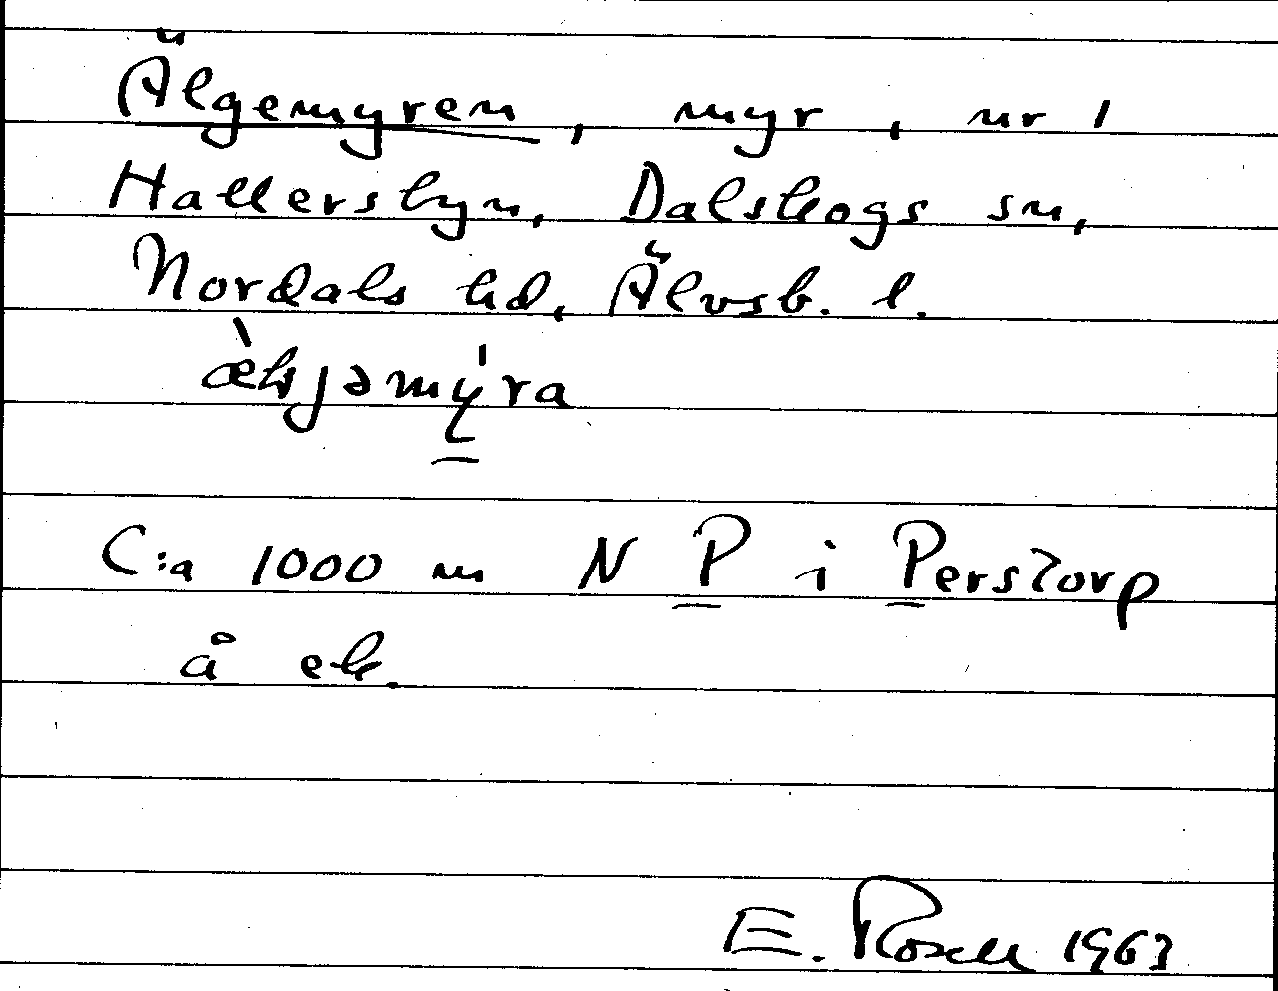 Älgemyren, myr, nr 1
Hallersbyn, Dalskogs sn,
Nordals hd, Älvsb. l.
C:a 1000 m N P i Perstorp
å ek.
E. Rosell 1963